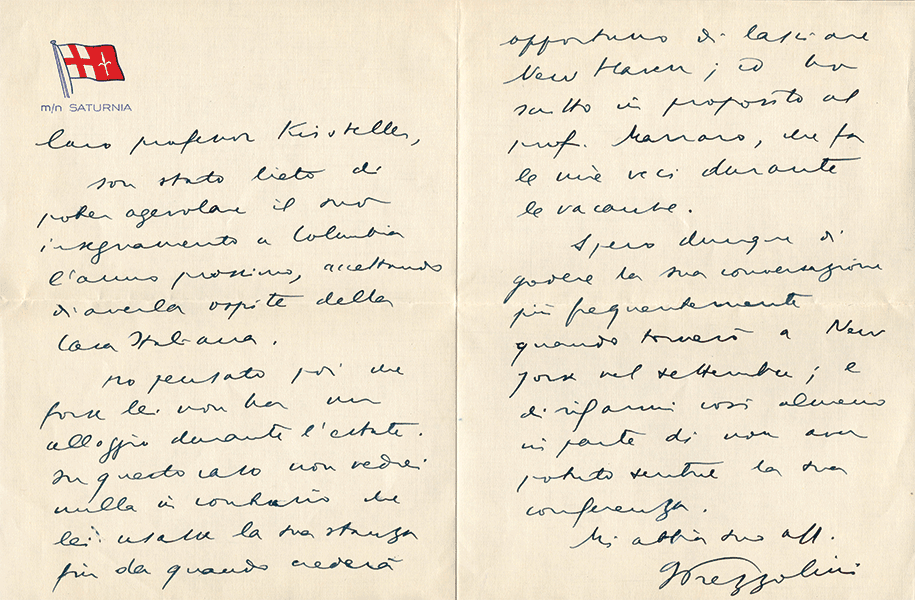 m/n SATURNIA
Caro professor Kristeller,
son stato lieto di
poter agevolare il suo
insegnamento a Columbia
l'anno prossimo, accettando
di averla ospite della
Casa Italiana.
Ho pensato poi che
forse lei non ha un
alloggio durante l'estate.
In questo caso non vedrei
nulla in contrario che
lei usasse la sua stanza
fin da quando crederà
opportuno di lasciare
New Haven; ed ho
scritto in proposito al
prof. Marraro, che fa
le mie veci durante
le vacanze.
Spero dunque di
godere la sua conversazione
più frequentemente
quando tornerò a New
York nel settembre; e
di rifarmi così almeno
in parte di non aver
potuto sentire la sua
conferenza.
Mi abbia suo aff.
GPrezzolini